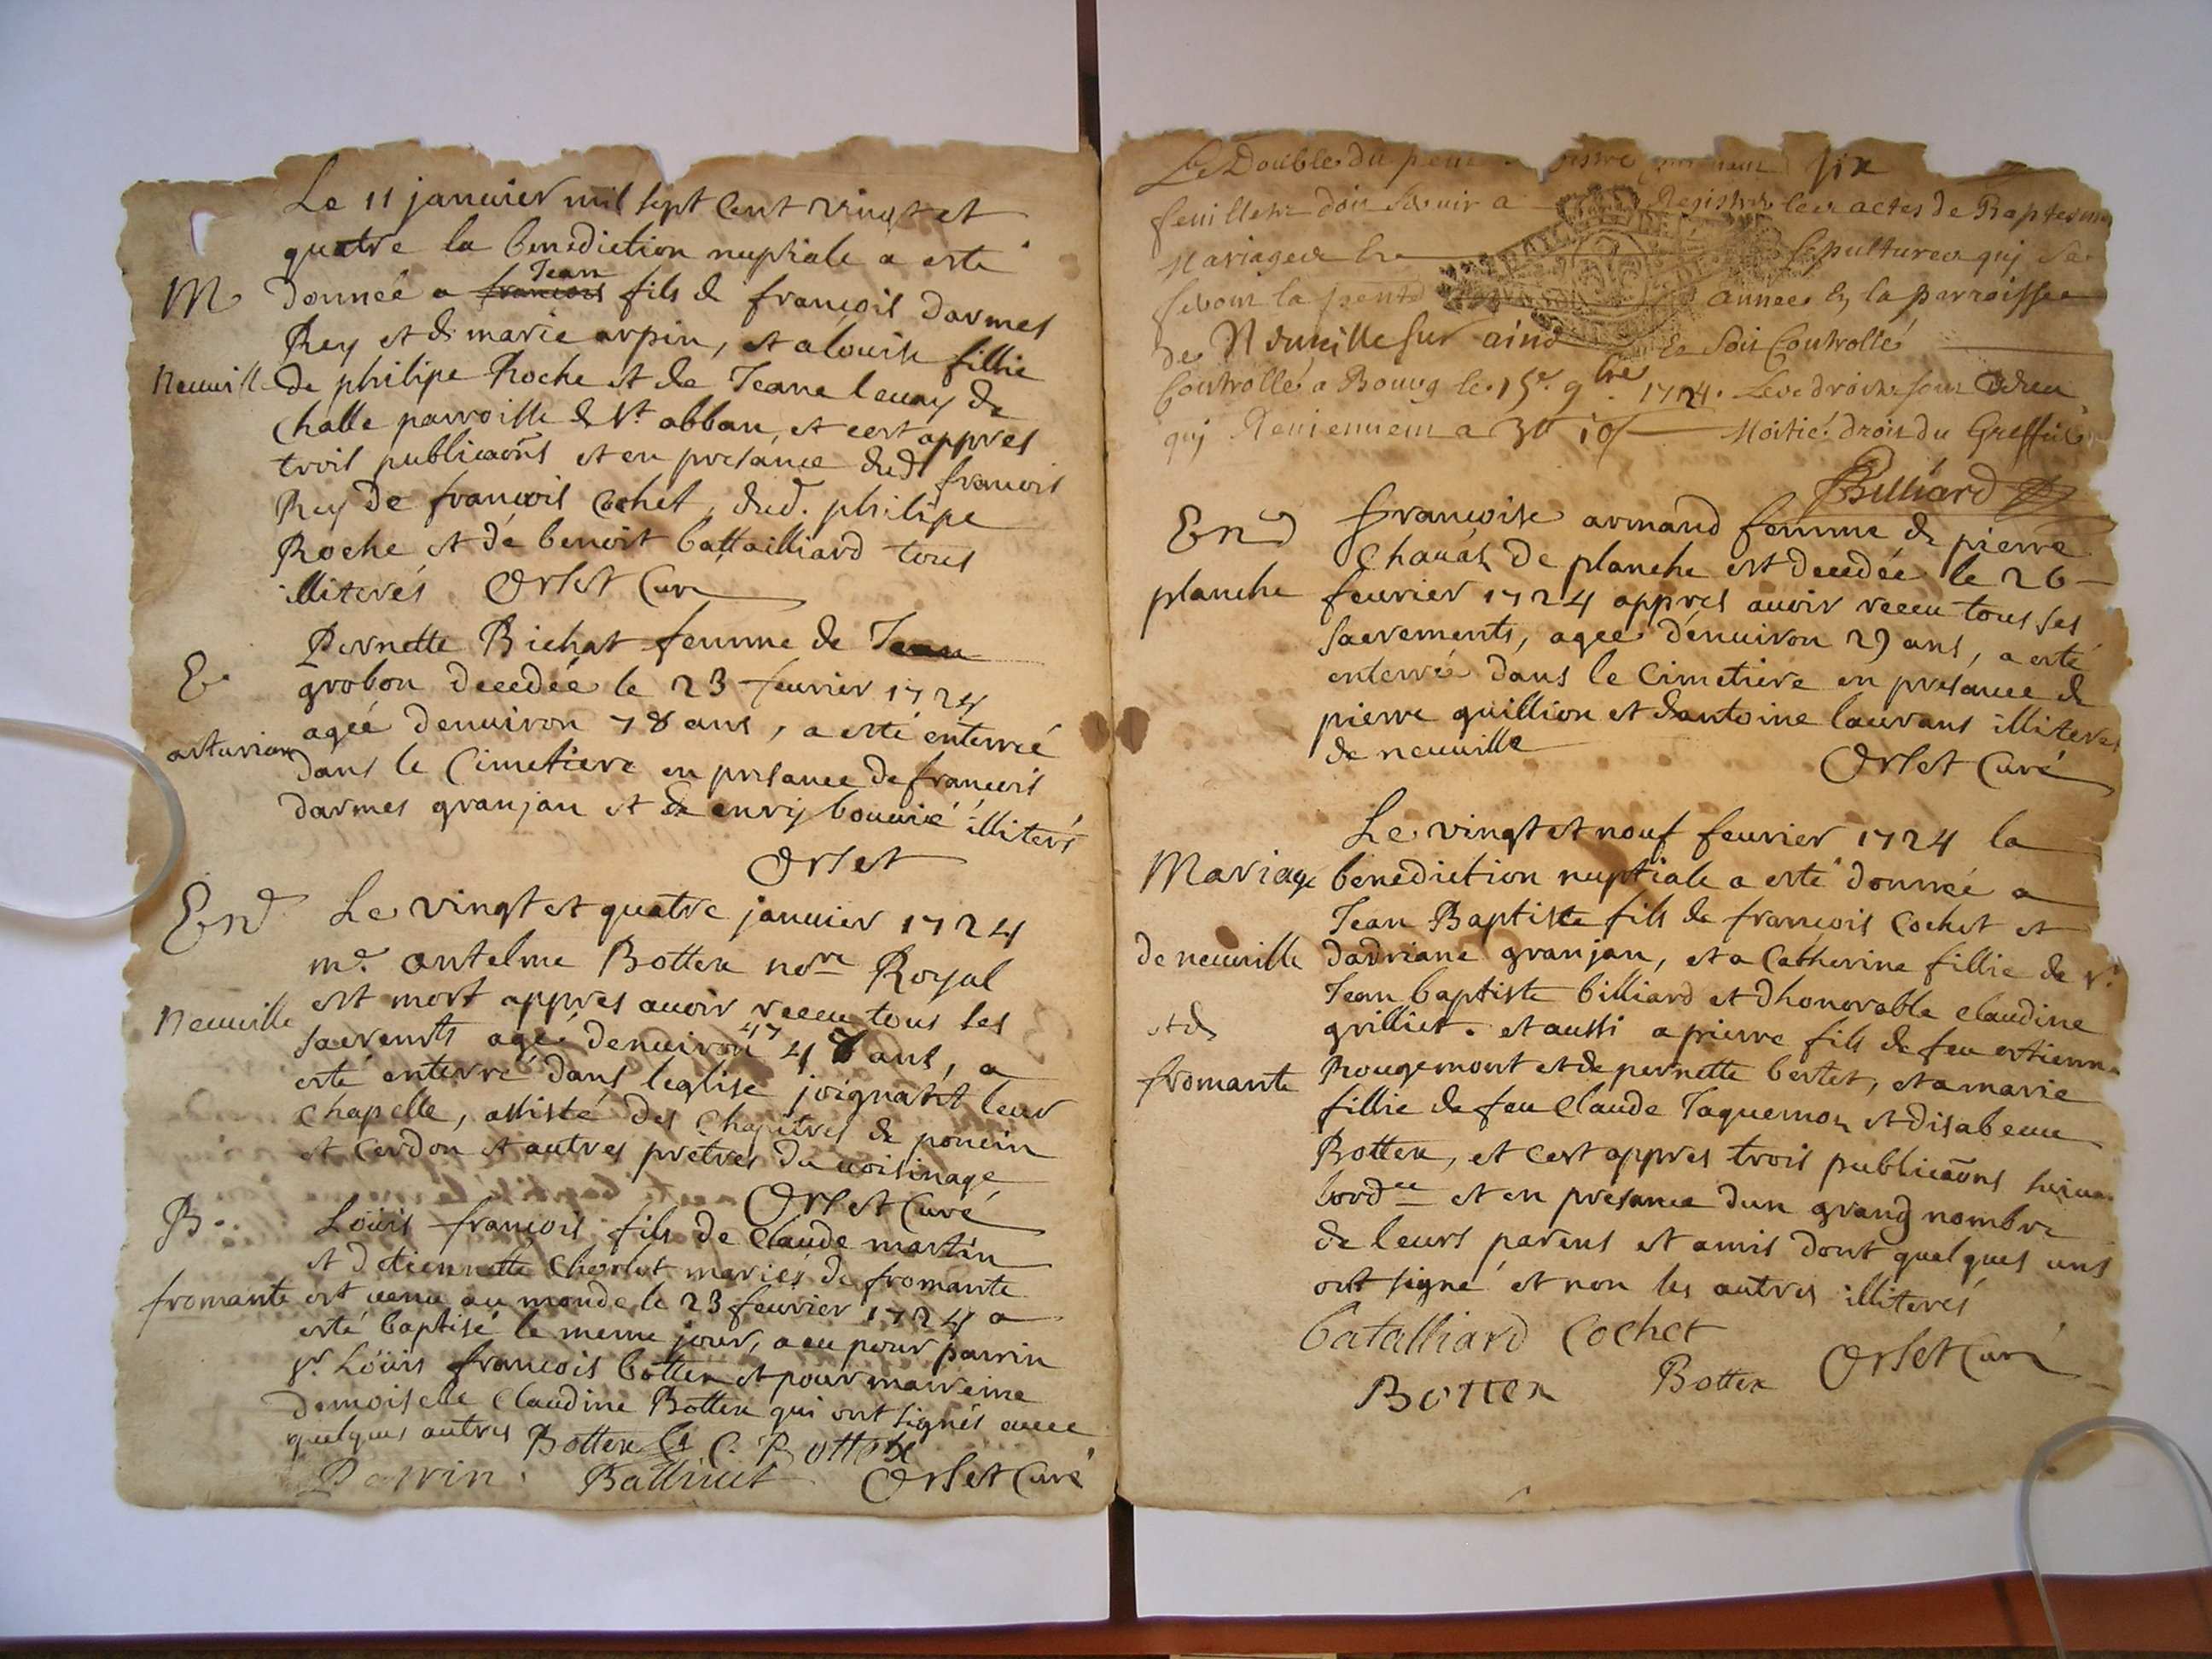 Le 11 janvier mil sept cent vingt et
quatre la benediction nuptiale a esté
M donnée a francois Jean fils de françois darmes
Rey et de marie arpin, et a louise fillie
Neuville de philipe Roche et de Jeane leuay de
Challe parroisse de St. abban, et cest appres
trois publicaōns et en presance dud francois
Rey de francois Cochet, dud. philipe
Roche et de benoit battailliard tous
illiterés Orset Curé
Pernette Bichat femme de Jean
E grobon decedée le 23 feurier 1724
agée denuiron 78 ans, a esté enterrée
dans le Cimetiere en presance de francois
darmes granjan et de enry bouuié illiterés
Orset
End Le vingt et quatre januier 1724
me. antelme Bottex nore Royal
est mort appres auoir receu tous ses
Neuville
sacremts agé denuiron 47 48 ans, a
esté enterré dans leglise joignant leur
chapelle, assisté des Chapitres de poncin
et Cerdon et autres pretres du uoisinage
Orset Curé
B. Loüis francois fils de Claude martin
et detiennette Cherlet mariés de fromante
fromante est uenu au monde le 23 feurier 1724 a
esté baptisé le meme jour, a eu pour parrin
sr. Loüis francois bottex et pour marreine
demoiselle Claudine Bottex qui ont signés auec
quelques autres Bottex C. Bottex
Perrin. Ballivet Orset Curé
Le Double du six
feuillets doit seruir a Registrer les actes de Baptesme
Mariages Et Sepultures quj se
feront la pente année En la parroisse
de Neuuille sur aind Et Soit Controllé
Controllé a Bourg le 15e. 9bre 1724. Les droits sont
quj Reuiennent a 3# 10s Moitié droit du Greffier
Billiard
End francoise armand femme de pierre
Chauát de planche est decedée le 26
planche feurier 1724 appres auoir receu tous ses
sacrements, agee denuiron 29 ans, a esté
enterrée dans le Cimetiere en presance de
pierre guillion et dantoine laurans illiteres
de neuuille
Orset Curé
Le vingt et nouf feurier 1724 la
Mariage benediction nuptiale a esté donnée a
Jean Baptiste fils de francois Cochet et
de neuuille dadriane granjan, et a Catherine fillie de sr.
Jean baptiste billiard et dhonorable Claudine
et de grilliet. et aussi a pierre fils de feu estienne
fromante Rougemont et de pernette bertet, et a marie
fillie de feu Claude Jaquemoz et disabeau
Bottex, et cest appres trois publicaōns
lordce et en presance dun grand nombre
de leurs parens et amis dont quelques uns
ont signé et non les autres illiterés
Batalliard Cochet
Bottex Bottex Orset Curé